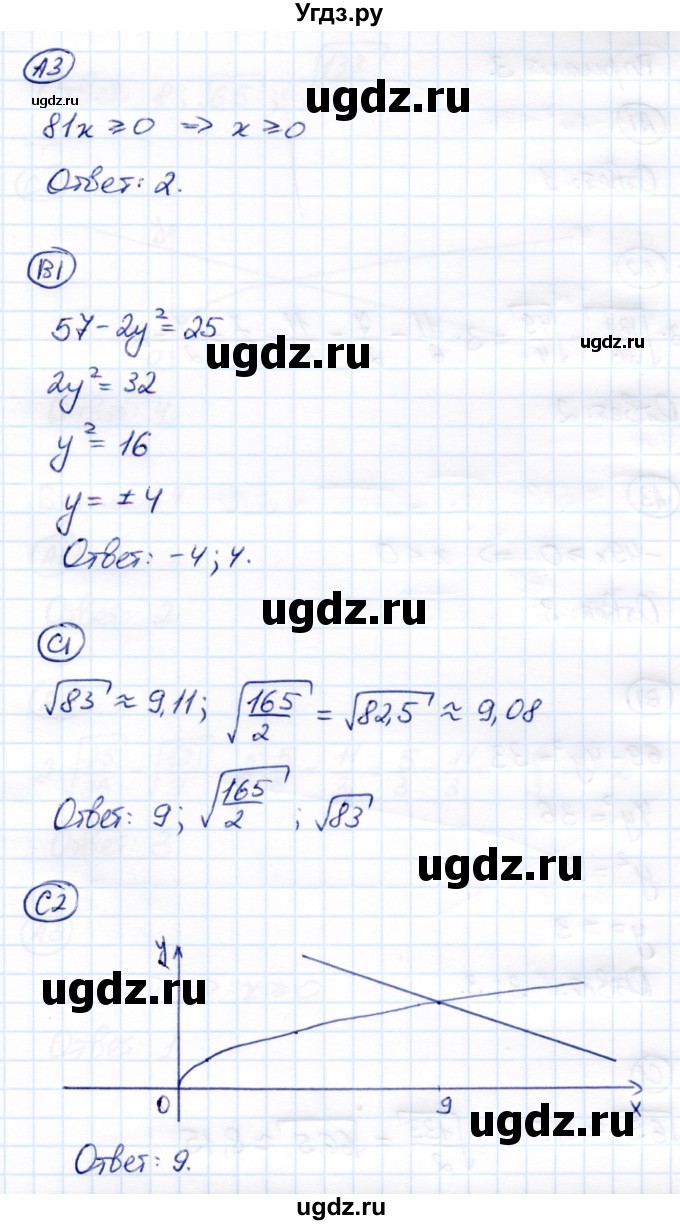 Угдз.ру
А3
ugdz.ru
ugdz.ru
81x ⩾ 0 => x ⩾ 0
Ответ: 2.
В1
57 - 2y² = 25
ugdz.ru
ugdz.ru
2y² = 32
y² = 16
y = ± 4
Ответ: -4; 4.
ugdz.ru
С1
√83 ≈ 9,11; √(165/2) = √82,5 ≈ 9,08
Ответ: 9; √(165/2) ; √83
ugdz.ru
С2
y
ugdz.ru
0 9 x
ugdz.ru
Ответ: 9.
ugdz.ru